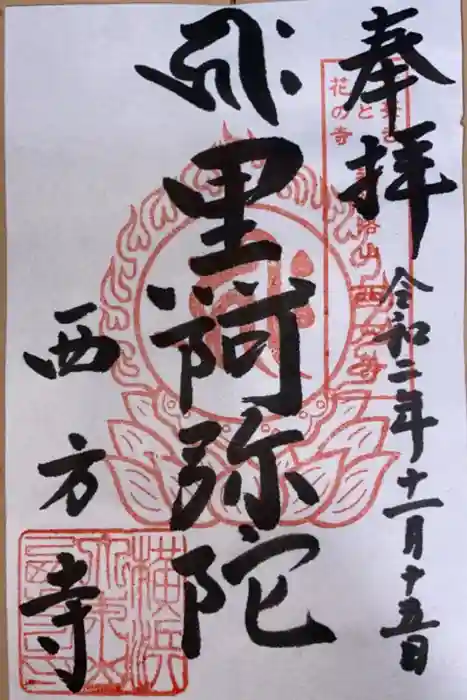 奉拝
令和二年十一月十五日
と
花の寺
路山西方寺
黒阿弥陀
西方寺
横浜